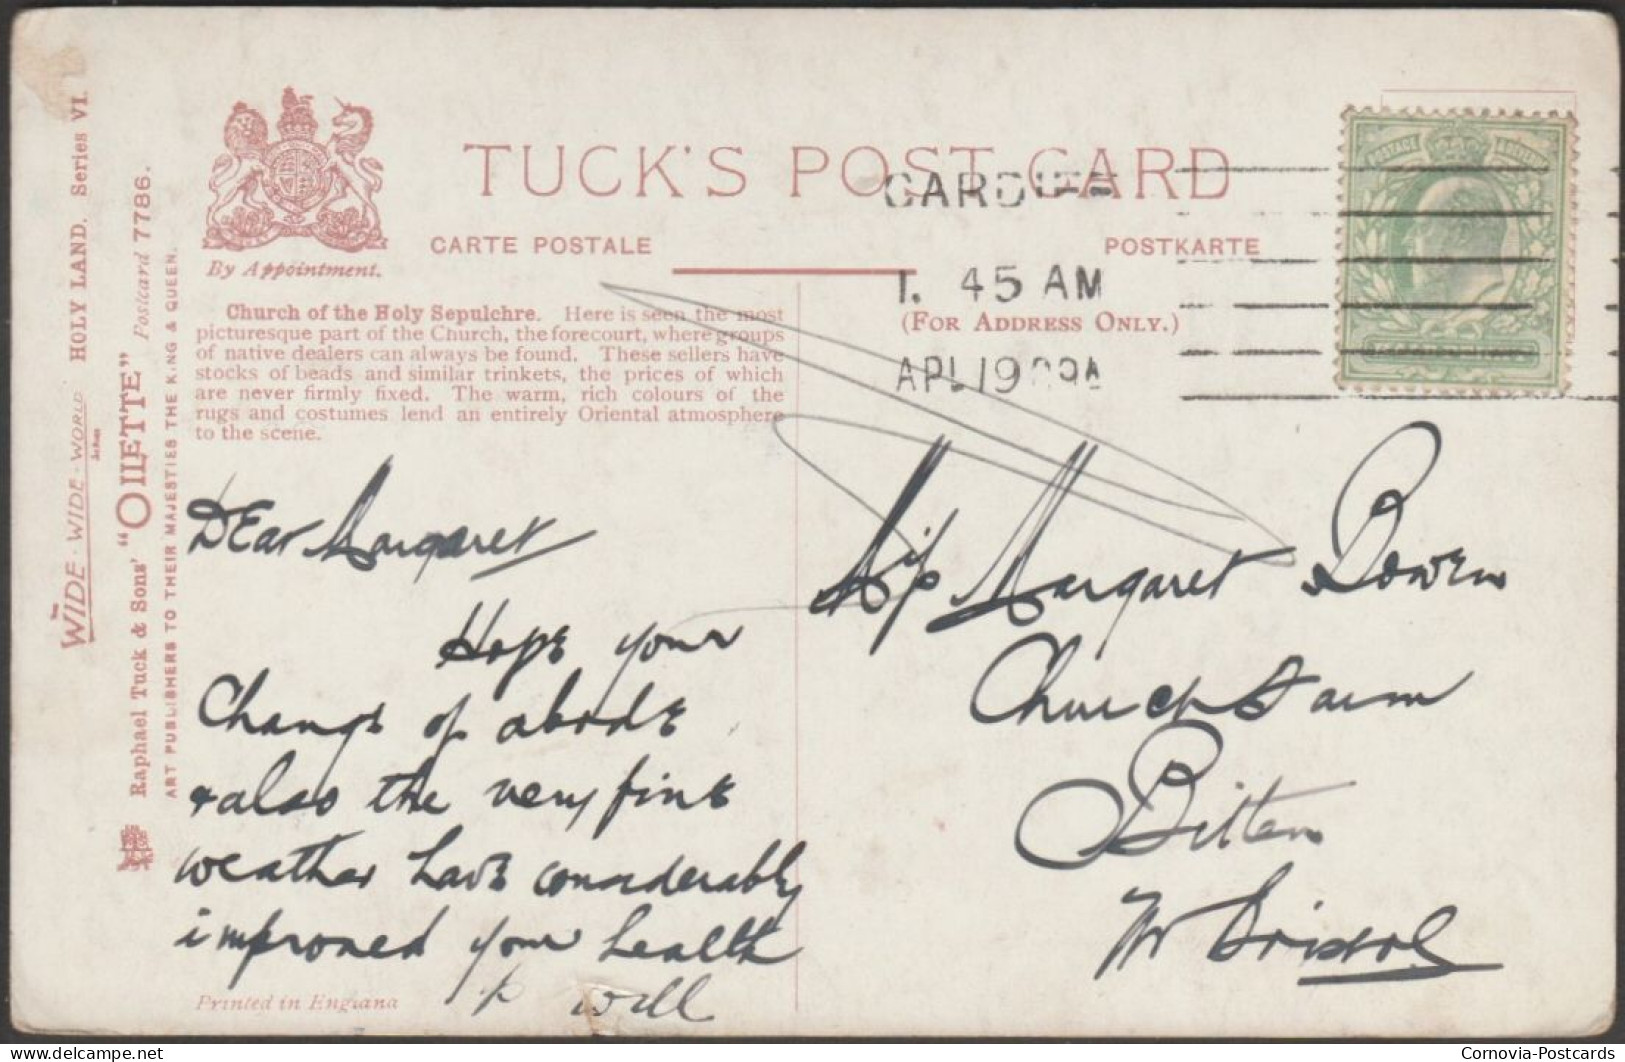 TUCK'S POST CARD
CARTE POSTALE
POSTKARTE
(FOR ADDRESS ONLY.)
CARDIFF
1. 45 AM
APL 19 09
By Appointment.
WIDE-WIDE-WORLD HOLY LAND. Series VI.
Raphael Tuck & Sons' "OILETTE" Postcard 7786.
ART PUBLISHERS TO THEIR MAJESTIES THE KING & QUEEN.
Church of the Holy Sepulchre. Here is seen the most
picturesque part of the Church, the forecourt, where groups
of native dealers can always be found. These sellers have
stocks of beads and similar trinkets, the prices of which
are never firmly fixed. The warm, rich colours of the
rugs and costumes lend an entirely Oriental atmosphere
to the scene.
Dear Margaret
Hope your
Change of abode
& also the very fine
weather have considerably
improved your health
Will
Miss Margaret Bowen
Church Farm
Bitton
Nr Bristol
POSTAGE & REVENUE
Printed in England
delcampe.net
Cornovia-Postcards